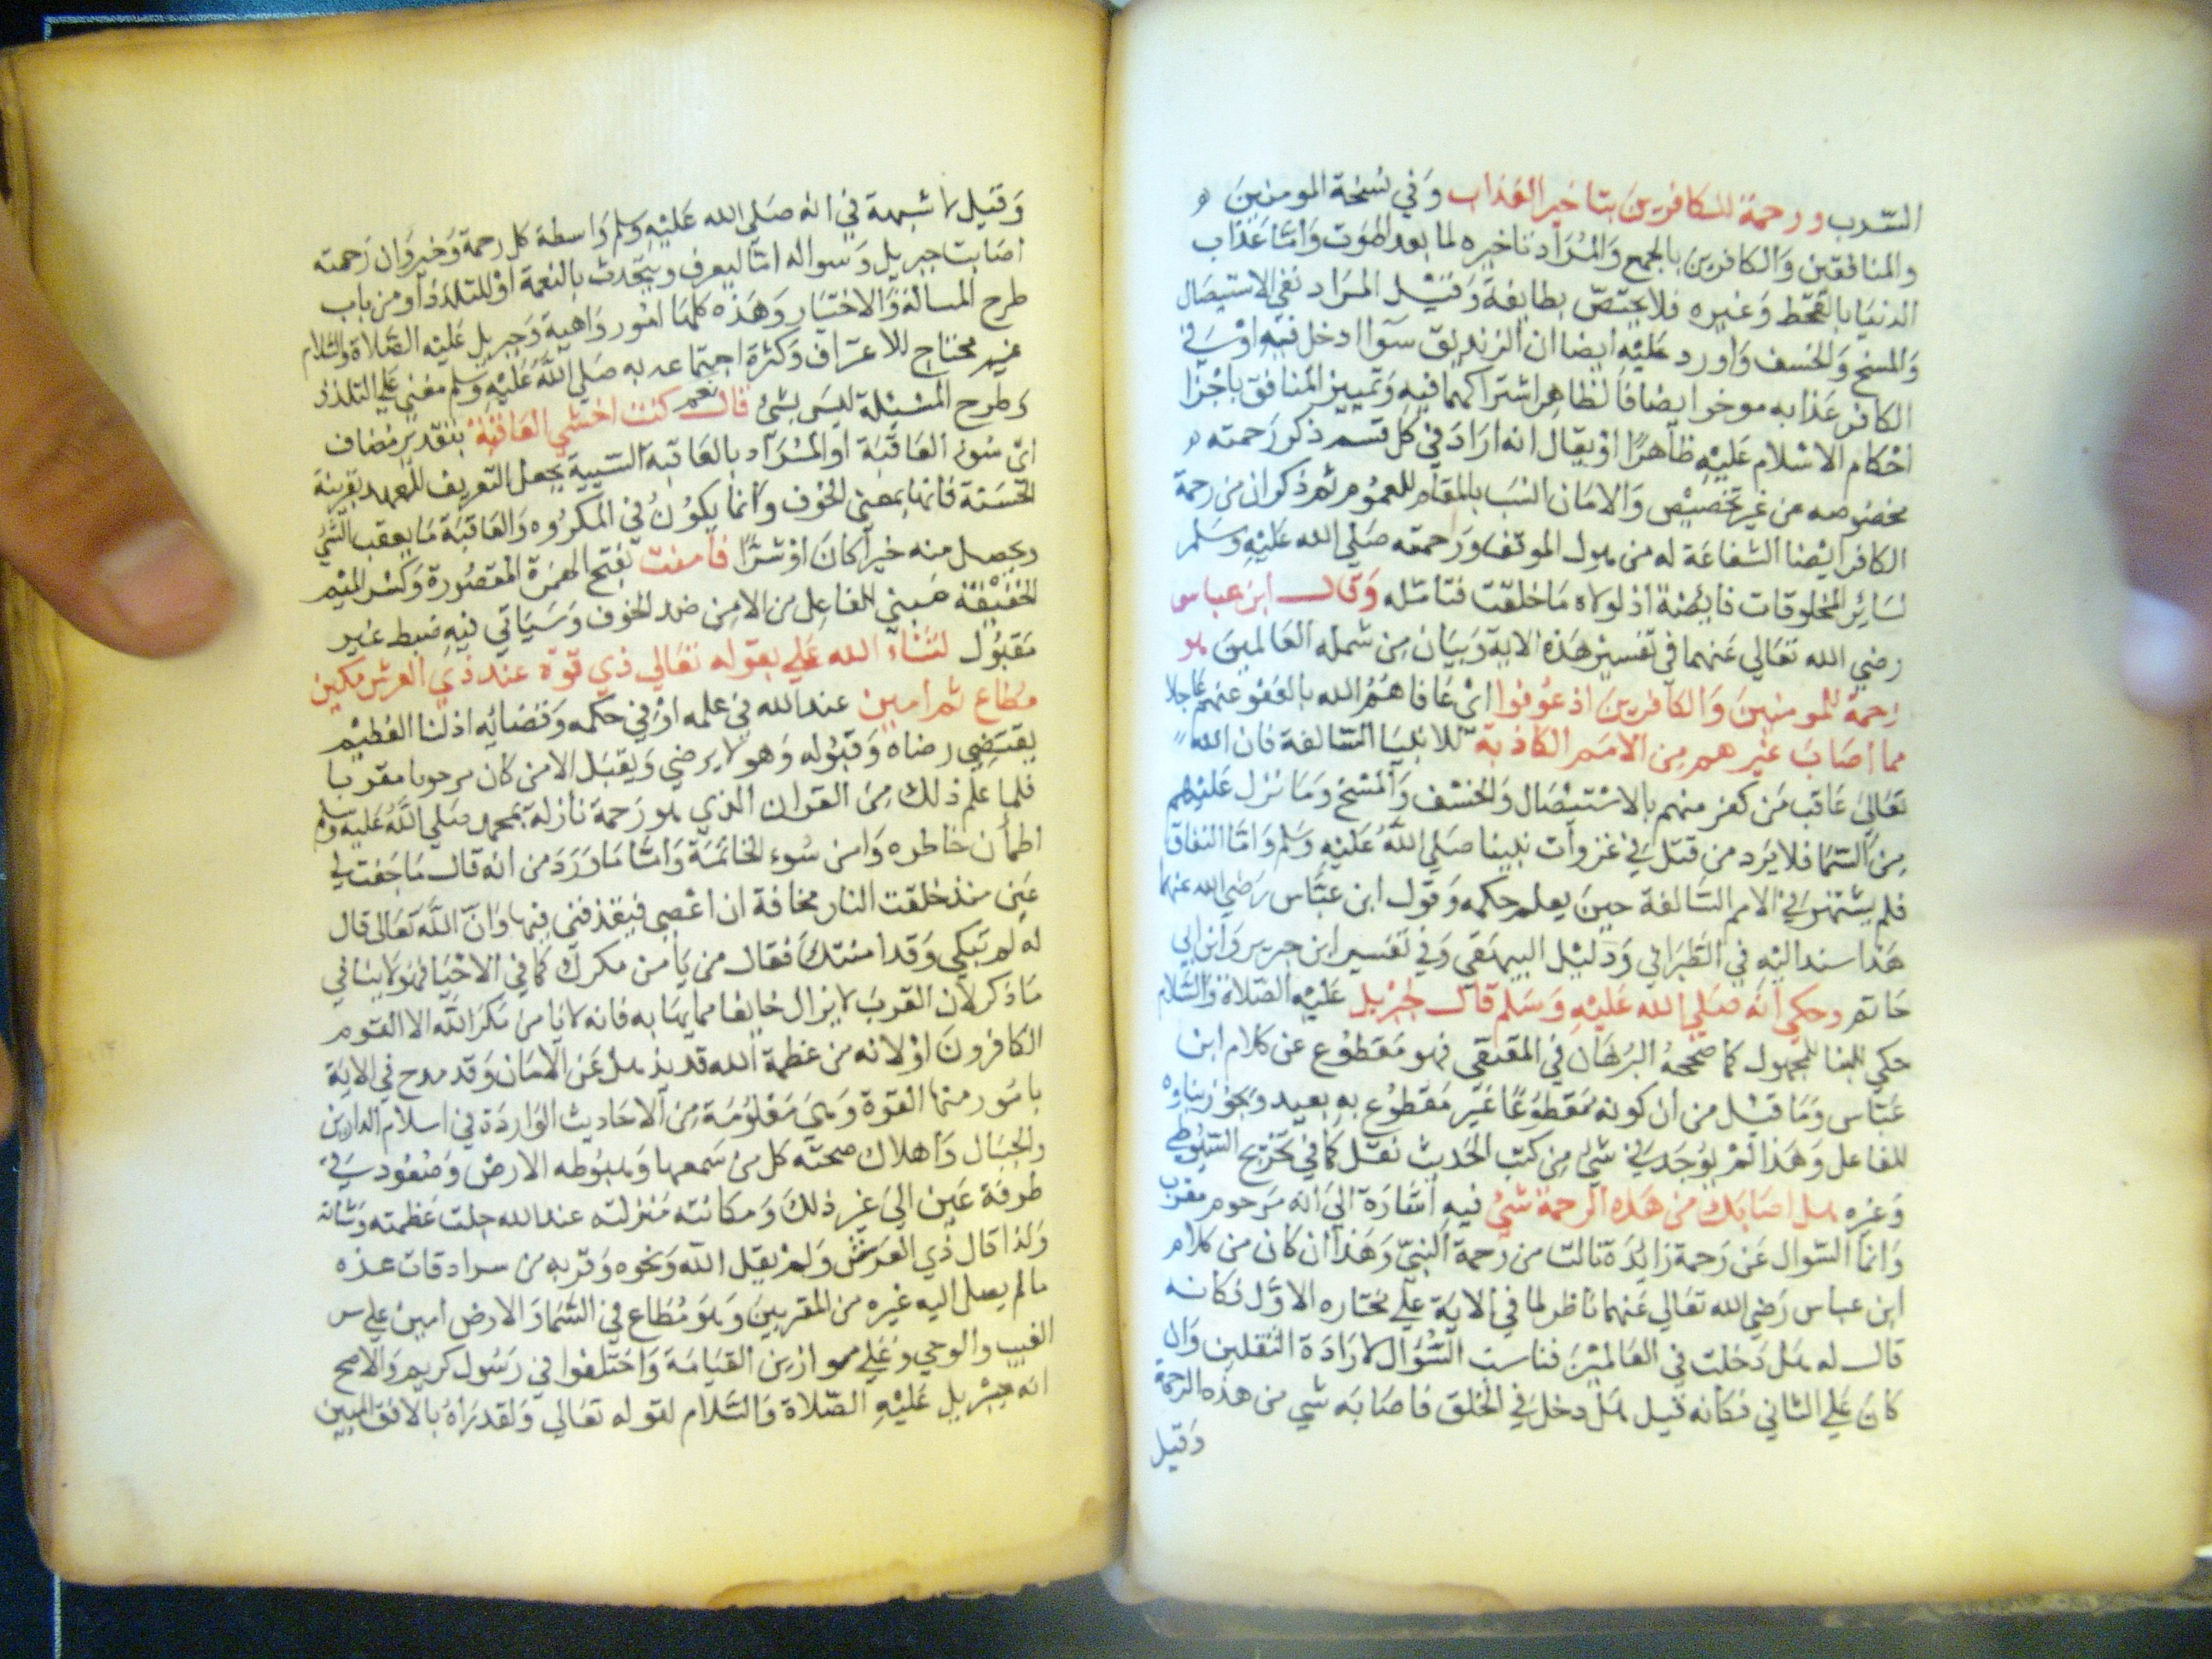 السرب ورحمة للكافرين بتاخير العذاب وفي نسخة المومنين
والمنافقين والكافرين بالجمع والمراد تاخيره لما بعد الموت واما عذاب
الدنيا بالقحط وغيره فلا يختص بطايفة وقيل المراد نفي الاستيصال
والمسخ والخسف واورد عليه ايضا ان الزنديق سوا ادخل فيه اوفي
الكافر عذابه موخر ايضا فالظاهر اشتراكهما فيه وتمييز المنافق باجرا
احكام الاسلام عليه ظاهرا او يقال انه اراد في كل قسم ذكر رحمته
مخصوصه من غير تخصيص والامان انسب بالمقام للعموم ثم ذكر ان من رحمة
الكافر ايضا الشفاعة له من هول الموقف ورحمته صلي الله عليه وسلم
لسائر المخلوقات فايضة اذ لولاه ما خلقت فتامله وقال ابن عباس
رضي الله تعالي عنهما في تفسير هذه الاية وبيان من شمله العالمين هو
رحمة للمومنين والكافرين اذ عوفوا اي عافاهم الله بالعفو عنهم عاجلا
مما اصاب غيرهم من الامم الكاذبة للانبيا السالفة فان الله
تعالي عاقب من كفر منهم بالاستيصال والخسف والمسخ وما نزل عليهم
من السما فلا يرد من قتل في غزوات نبينا صلي الله عليه وسلم واما النفاق
فلم يشتهر في الامم السالفة حين يعلم حكمه وقول ابن عباس رضي الله عنهما
هذا سند اليه في الطبراني ودليل البيهقي وفي تفسير ابن جرير وابن ابي
حاتم وحكي انه صلي الله عليه وسلم قال لجبريل عليه الصلاة والسلام
حكي للبنا للمجهول كما صححه البرهان في المقتفي فهو مقطوع عن كلام ابن
عباس وما قيل من ان كونه مقطوعا غير مقطوع به بعيد ويجوز بناوه
للفاعل وهذا لم يوجد في شي من كتب الحديث نقل كما في تخريج السيوطي
وغيره هل اصابك من هذه الرحمة شي فيه اشارة الي انه مرحوم مقرب
وانما السوال عن رحمة زايدة نالت من رحمة النبي وهذا ان كان من كلام
ابن عباس رضي الله تعالي عنهما ناظر لما في الاية علي مختاره الاول فكانه
قال له هل دخلت في العالمين فناسب السوال لارادة الثقلين وان
كان علي الثاني فكانه قيل هل دخل في الخلق فاصابه شي من هذه الرحمة
وقيل
وقيل لا شبهة في انه صلي الله عليه وسلم واسطة كل رحمة وخير وان رحمته
اصابت جبريل وسواله اما ليعرف ويتحدث بالنعمة او للتلذذ او من باب
طرح المسالة والاختيار وهذه كلها امور واهية وجبريل عليه الصلاة والسلام
غير محتاج للاعتراف وكثرة اجتماعه به صلي الله عليه وسلم مغني علي التلذذ
وطرح المسيلة ليس بشي قال نعم كنت اخشي العاقبة بتقدير مضاف
اي سوء العاقبة او المراد بالعاقبة السيية بجعل التعريف للعهد بقرينة
الخشية فانها بمعني الخوف وانما يكون في المكروه والعاقبة ما يعقب الشي
ويحصل منه خيرا كان او شرا فامنت بفتح الهمزة المقصورة وكسر الميم
الخفيفة مبني للفاعل من الامن ضد الخوف وسياتي فيه ضبط غير
مقبول لثناء الله علي بقوله تعالي ذي قوة عند ذي العرش مكين
مطاع ثم امين عند الله في علمه او في حكمه وقضائه اذ لنا العظيم
يقتضي رضاه وقبوله وهو لا يرضي ويقبل الا من كان مرحوما مقربا
فلما علم ذلك من القران الذي هو رحمة نازلة بمحمد صلي الله عليه وسلم
اطمأن خاطره وامن سوء الخاتمة واما ما ورد من انه قال ما جفت لي
عين منذ خلقت النار مخافة ان اعصي فيقذفني فيها وان الله تعالي قال
له لم تبكي وقد امنتك فقال من يامن مكرك كما في الاحيا فهو لا ينافي
ما ذكر لان القرب لا يزال خايفا مما يهابه فانه لا يامن مكر الله الا القوم
الكافرون او لانه من عظمة الله قد يذهل عن الامان وقد مدح في الاية
بامور منها القوة وهي معلومة من الاحاديث الواردة في اسلام الدارين
والجبال واهلاك صحته كل من سمعها وهبوطه الارض وصعوده في
طرفة عين الي غير ذلك ومكانته منزلته عند الله جلت عظمته وشانه
ولذا قال ذي العرش ولم يقل الله ونحوه وقربه من سرادقات عزه
ما لم يصل اليه غيره من المقربين وهو مطاع في السما والارض امين علي سر
الغيب والوحي وعلي موازين القيامة واختلفوا في رسول كريم والاصح
انه جبريل عليه الصلاة والسلام لقوله تعالي ولقد راه بالافق المبين